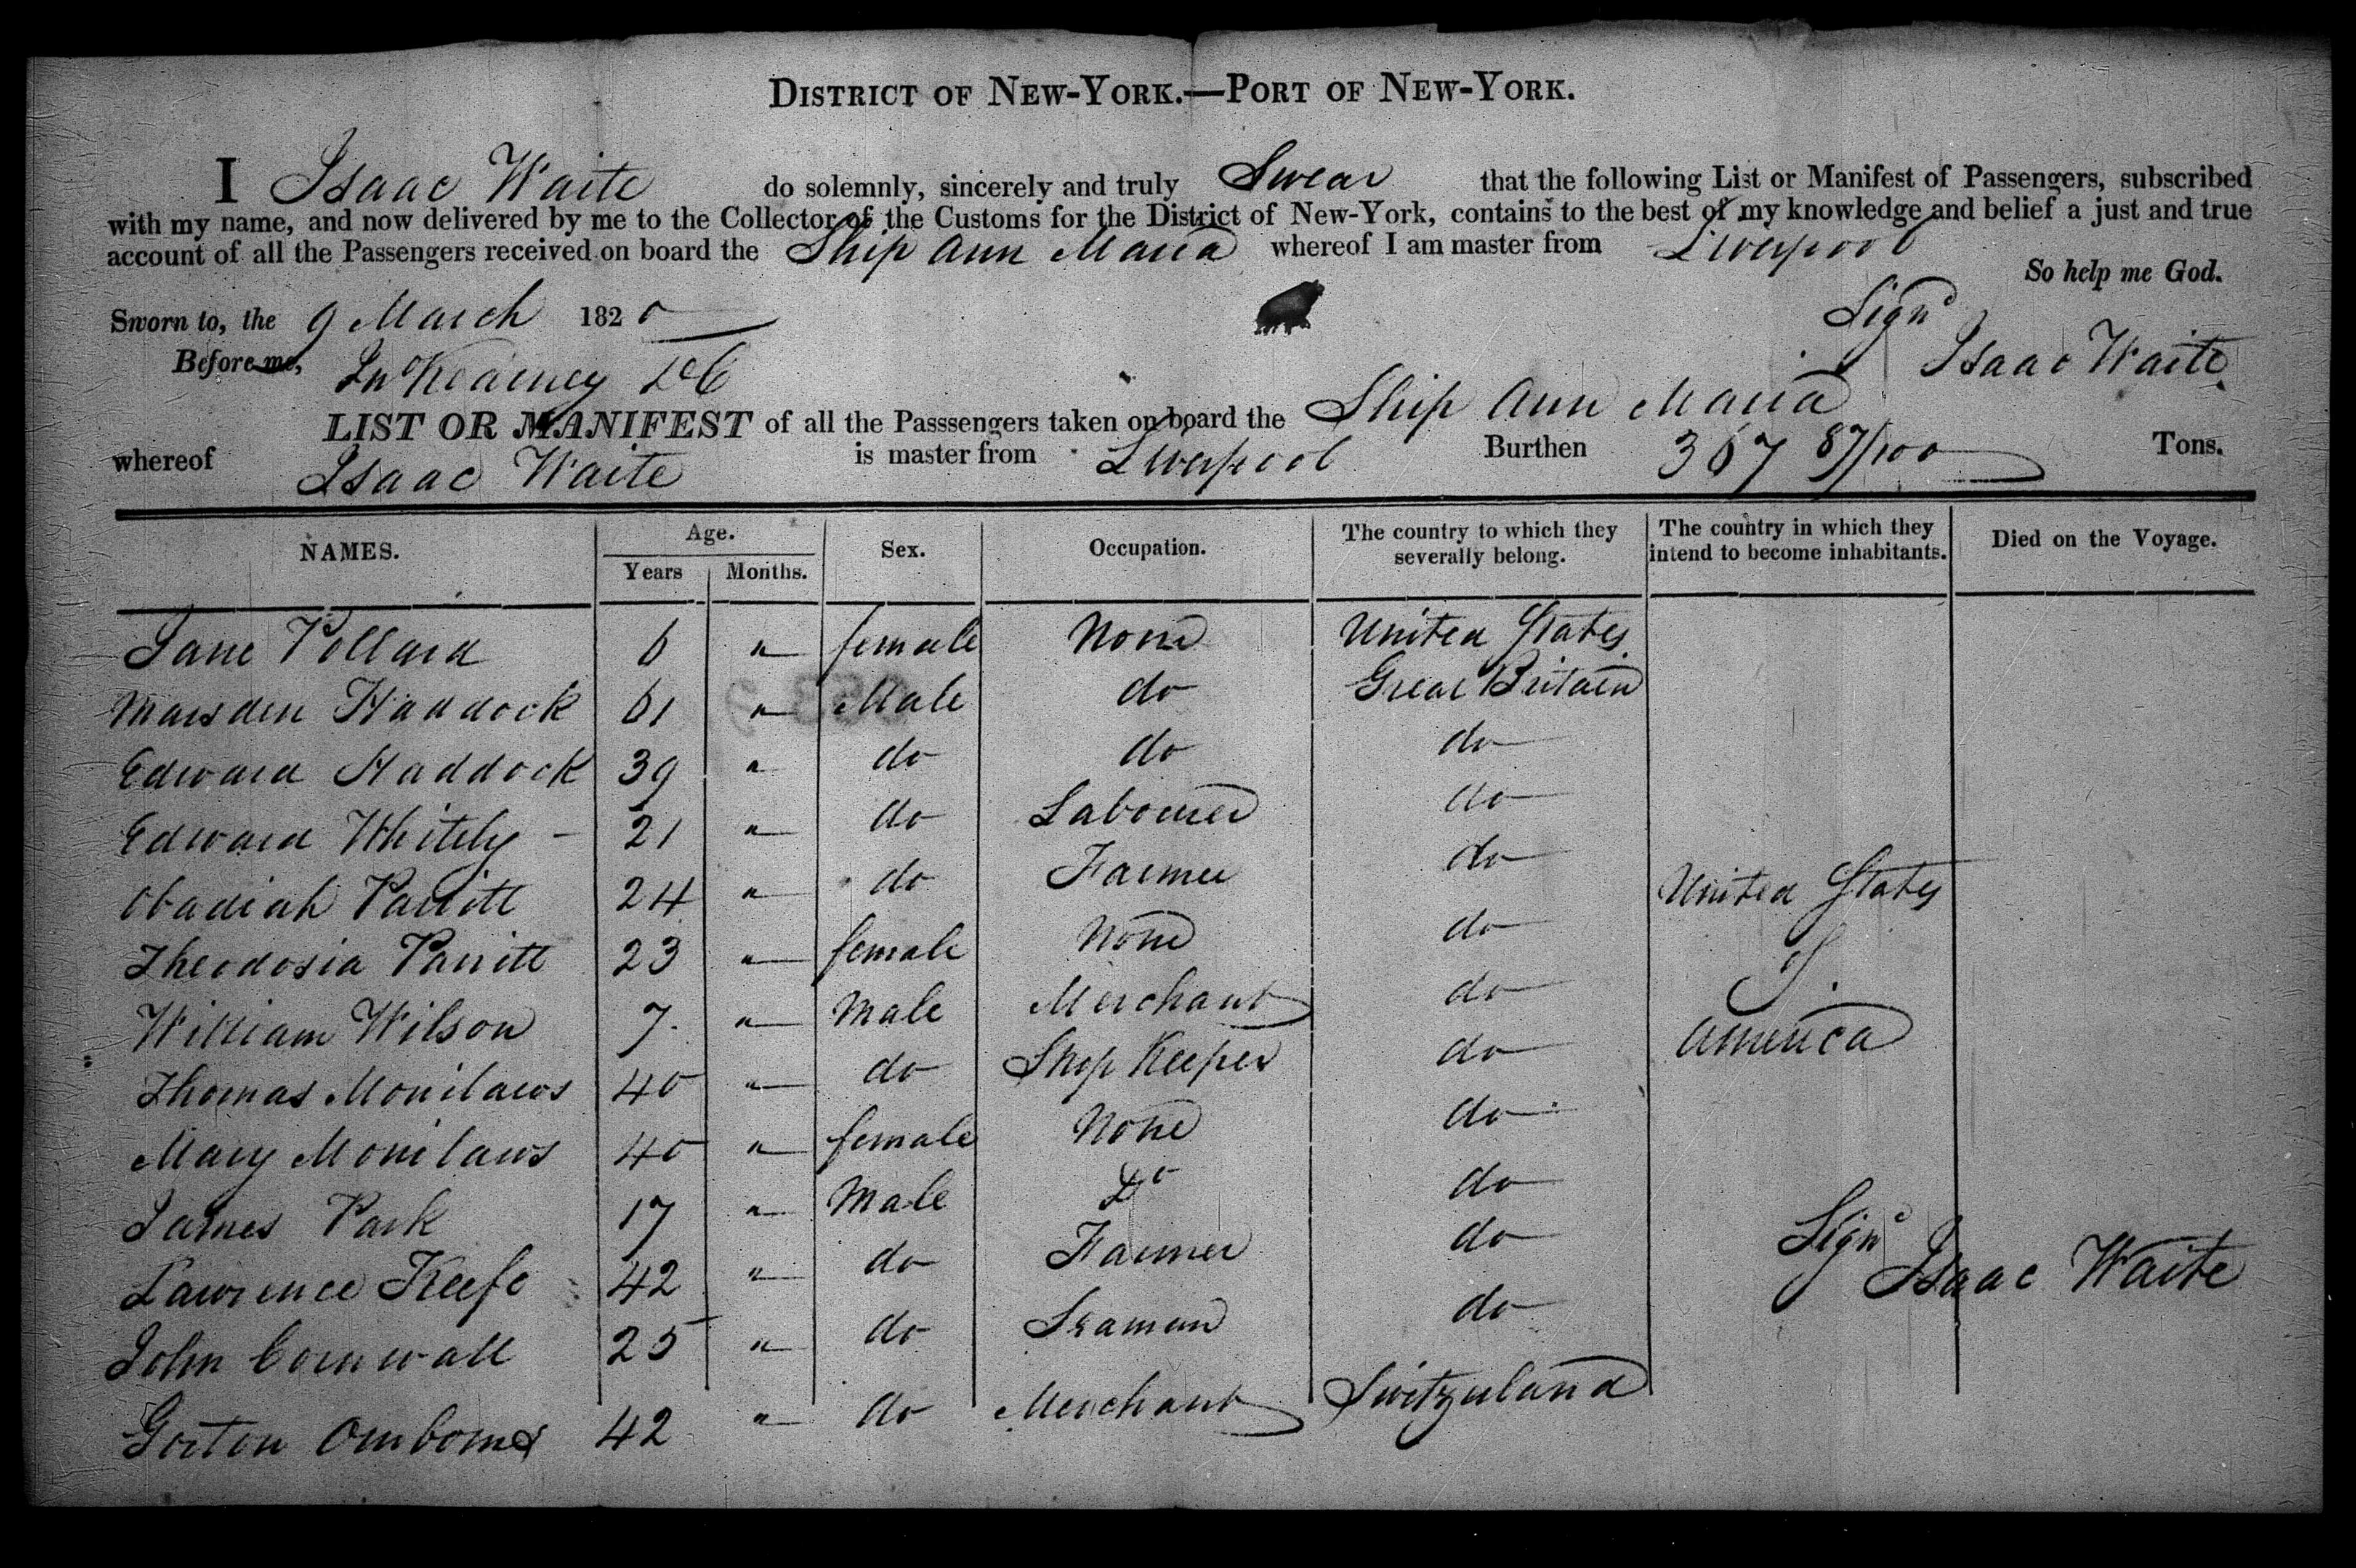 DISTRICT OF NEW-YORK.—PORT OF NEW-YORK.
I Isaac Waite do solemnly, sincerely and truly Swear that the following List or Manifest of Passengers, subscribed
with my name, and now delivered by me to the Collector of the Customs for the District of New-York, contains to the best of my knowledge and belief a just and true
account of all the Passengers received on board the Ship Ann Maria whereof I am master from Liverpool
So help me God.
Sworn to, the 9 March 1820 Signd
Before me, Isaac Waite
LIST OR MANIFEST of all the Passsengers taken on board the Ship Ann Maria
whereof Isaac Waite is master from Liverpool Burthen 367 87/100 Tons.
NAMES. Age. Years Months. Sex. Occupation. The country to which they severally belong. The country in which they intend to become inhabitants. Died on the Voyage.
Jane Pollard 6 " female None United States
Marsden Haddock 61 " Male do Great Britain
Edward Haddock 39 " do do do
Edward Whitely - 21 " do Labourer do
Obadiah Parritt 24 " do Farmer do United States
Theodosia Parritt 23 " female None do of
William Wilson 7 " Male Merchant do America
Thomas Monilaws 40 " do Shop Keeper do
Mary Monilaws 40 " female None do
James Park 17 " Male Do do
Lawrence Keefe 42 " do Farmer do Signd Isaac Waite
John Cornwall 25 " do Seaman do
Gorton 42 " do Merchant Switzerland